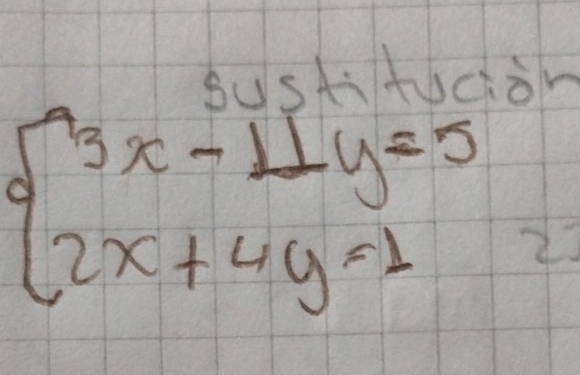 sustitución
3x - 11y = 5
2x + 4y = 1